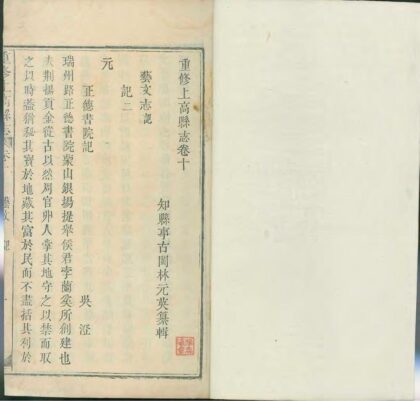 重修上高縣志卷十
知縣事古岡林元英纂輯
藝文志記
記二
元
正德書院記
吳澄
瑞州路正德書院蒙山銀場提舉侯君孛蘭奚所創建也
夫荆揚貢金從古以然周官丱人掌其地守之以禁而取
之以時蓋猶秘其寶於地藏其富於民而不盡括其利於